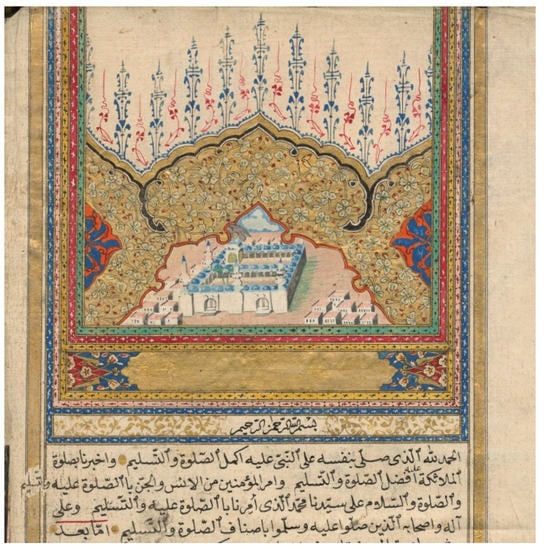 بسم الله الرحمن الرحيم
الحمد لله الذى صلى بنفسه على النبى عليه كمل الصلوة والتسليم واخبرنا بصلوة
الملائكة عليه افضل الصلوة والتسليم وامر المؤمنين من الانس والجن بالصلوة عليه والتسليم
والصلوة والسلام على سيدنا محمد الذى امرنا بالصلوة عليه والتسليم وعلى
آله واصحابه الذين صلوا عليه وسلموا باصناف الصلوة والتسليم اما بعد